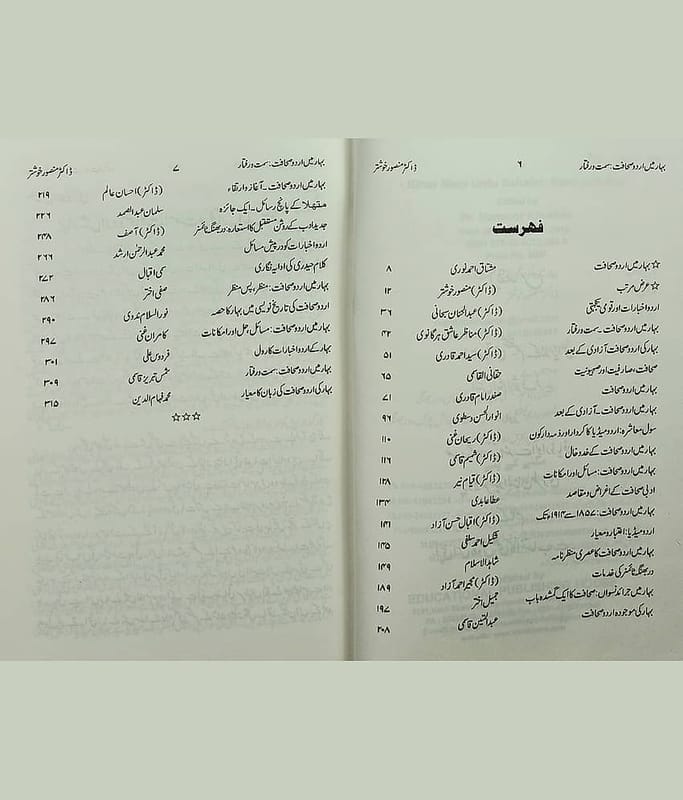 بہار میں اردو صحافت: سمت و رفتار ۶ ڈاکٹر منصور خوشتر
فہرست
☆ بہار میں اردو صحافت مشتاق احمد نوری ۸
☆ عرض مرتب (ڈاکٹر) منصور خوشتر ۱۲
اردو اخبارات اور قومی یکجہتی (ڈاکٹر) عبدالمنان سبحانی ۳۶
بہار میں اردو صحافت۔ سمت و رفتار (ڈاکٹر) مناظر عاشق ہرگانوی ۴۲
بہار کی اردو صحافت آزادی کے بعد (ڈاکٹر) سید احمد قادری ۵۱
صحافت، صارفیت اور صیہونیت حقانی القاسمی ۶۵
بہار میں اردو صحافت صفدر امام قادری ۷۱
بہار میں اردو صحافت۔ آزادی کے بعد انوار الحسن وسطوی ۹۶
سول معاشرہ: اردو میڈیا کا کردار اور ذمہ دار کون (ڈاکٹر) ریحان غنی ۱۱۰
بہار میں اردو صحافت کے خدوخال (ڈاکٹر) شمیم قاسمی ۱۱۶
بہار میں اردو صحافت: مسائل اور امکانات (ڈاکٹر) قیام نیر ۱۲۸
ادبی صحافت کے اغراض و مقاصد عطا عابدی ۱۳۴
بہار میں اردو صحافت: ۱۸۵۷ سے ۱۹۱۴ء تک (ڈاکٹر) اقبال حسن آزاد ۱۴۱
اردو میڈیا: اعتبار و معیار شکیل احمد سلفی ۱۴۵
بہار میں اردو صحافت کا عصری منظر نامہ شاہد الاسلام ۱۴۹
دربھنگہ ٹائمنر کی خدمات (ڈاکٹر) مجیر احمد آزاد ۱۸۹
بہار میں جرائد نسواں: صحافت کا ایک گمشدہ باب جمیل اختر ۱۹۷
بہار کی موجودہ اردو صحافت عبدالمتین قاسمی ۲۰۸
بہار میں اردو صحافت: سمت و رفتار ۷ ڈاکٹر منصور خوشتر
بہار میں اردو صحافت۔ آغاز و ارتقاء (ڈاکٹر) احسان عالم ۲۱۹
متھلا کے پانچ رسائل۔ ایک جائزہ سلمان عبدالصمد ۲۲۶
جدید ادب کے روشن مستقبل کا استعارہ: دربھنگہ ٹائمنر (ڈاکٹر) آصف ۲۴۸
اردو اخبارات کو درپیش مسائل محمد عبدالرحمٰن ارشد ۲۶۶
کلام حیدری کی اداریہ نگاری سمی اقبال ۲۷۲
بہار میں اردو صحافت: منظر، پس منظر صفی اختر ۲۸۶
اردو صحافت کی تاریخ نویسی میں بہار کا حصہ نور السلام ندوی ۲۹۰
بہار میں اردو صحافت: مسائل، حل اور امکانات کامران غنی ۲۹۷
بہار کے اردو اخبارات کا رول فردوس علی ۳۰۱
بہار میں اردو صحافت: سمت و رفتار شمس تبریز قاسمی ۳۰۹
بہار کی اردو صحافت کی زبان کا معیار محمد فہام الدین ۳۱۵
☆☆☆